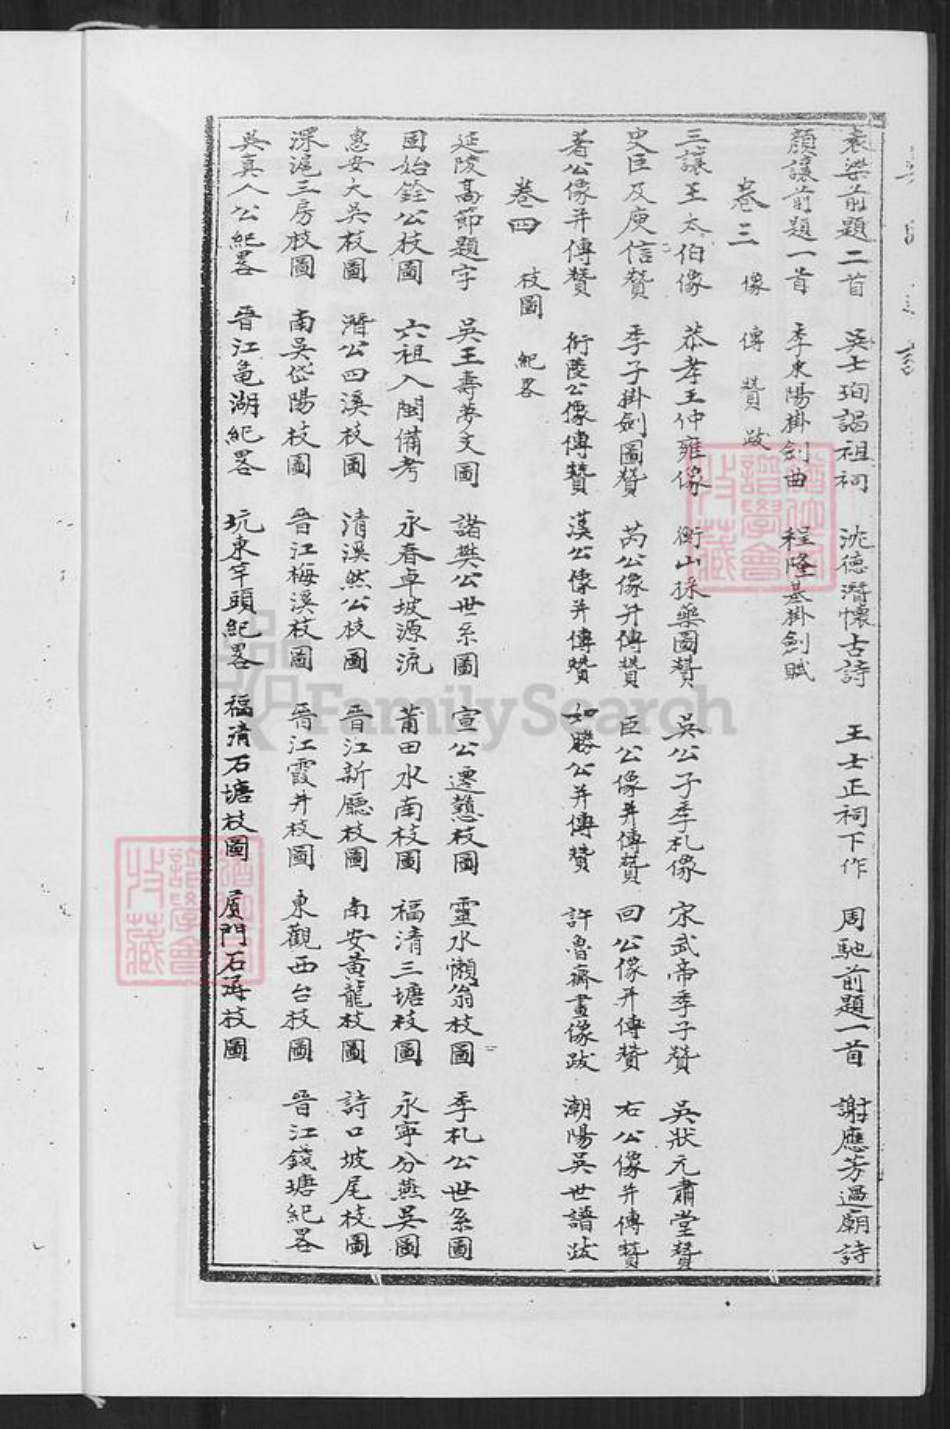 袁梁前題二首 吳士珣謁祖祠 沈德潛懷古詩 王士正祠下作 周馳前題一首 謝應芳過廟詩
顏讓前題一首 季東陽掛劍曲 程隆基掛劍賦
卷三 像 傳 贊 跋
三讓王太伯像 恭孝王仲雍像 衡山採藥圖贊 吳公子季札像 宋武帝季子贊 吳狀元肅堂贊
史臣及庾信贊 季子掛劍圖贊 芮公像并傳贊 臣公像并傳贊 回公像并傳贊 右公像并傳贊
著公像并傳贊 衎陵公像傳贊 漢公像并傳贊 如勝公并傳贊 許魯齋畫像跋 潮陽吳世譜跋
卷四 枝圖 紀畧
延陵高節題字 吳王壽夢支圖 諸樊公世系圖 宣公遷慧枝圖 靈水懶翁枝圖 季札公世系圖
固始銓公枝圖 六祖入閩備考 永春卓坡源流 莆田水南枝圖 福清三塘枝圖 永寧分燕吳圖
惠安大吳枝圖 潛公四溪枝圖 清溪然公枝圖 晉江新廳枝圖 南安黃龍枝圖 詩口坡尾枝圖
深滬三房枝圖 南吳岱陽枝圖 晉江梅溪枝圖 晉江霞井枝圖 東觀西台枝圖 晉江錢塘紀畧
吳真人公紀畧 晉江龟湖紀畧 坑東竿頭紀畧 福清石塘枝圖 厦門石潯枝圖
FamilySearch